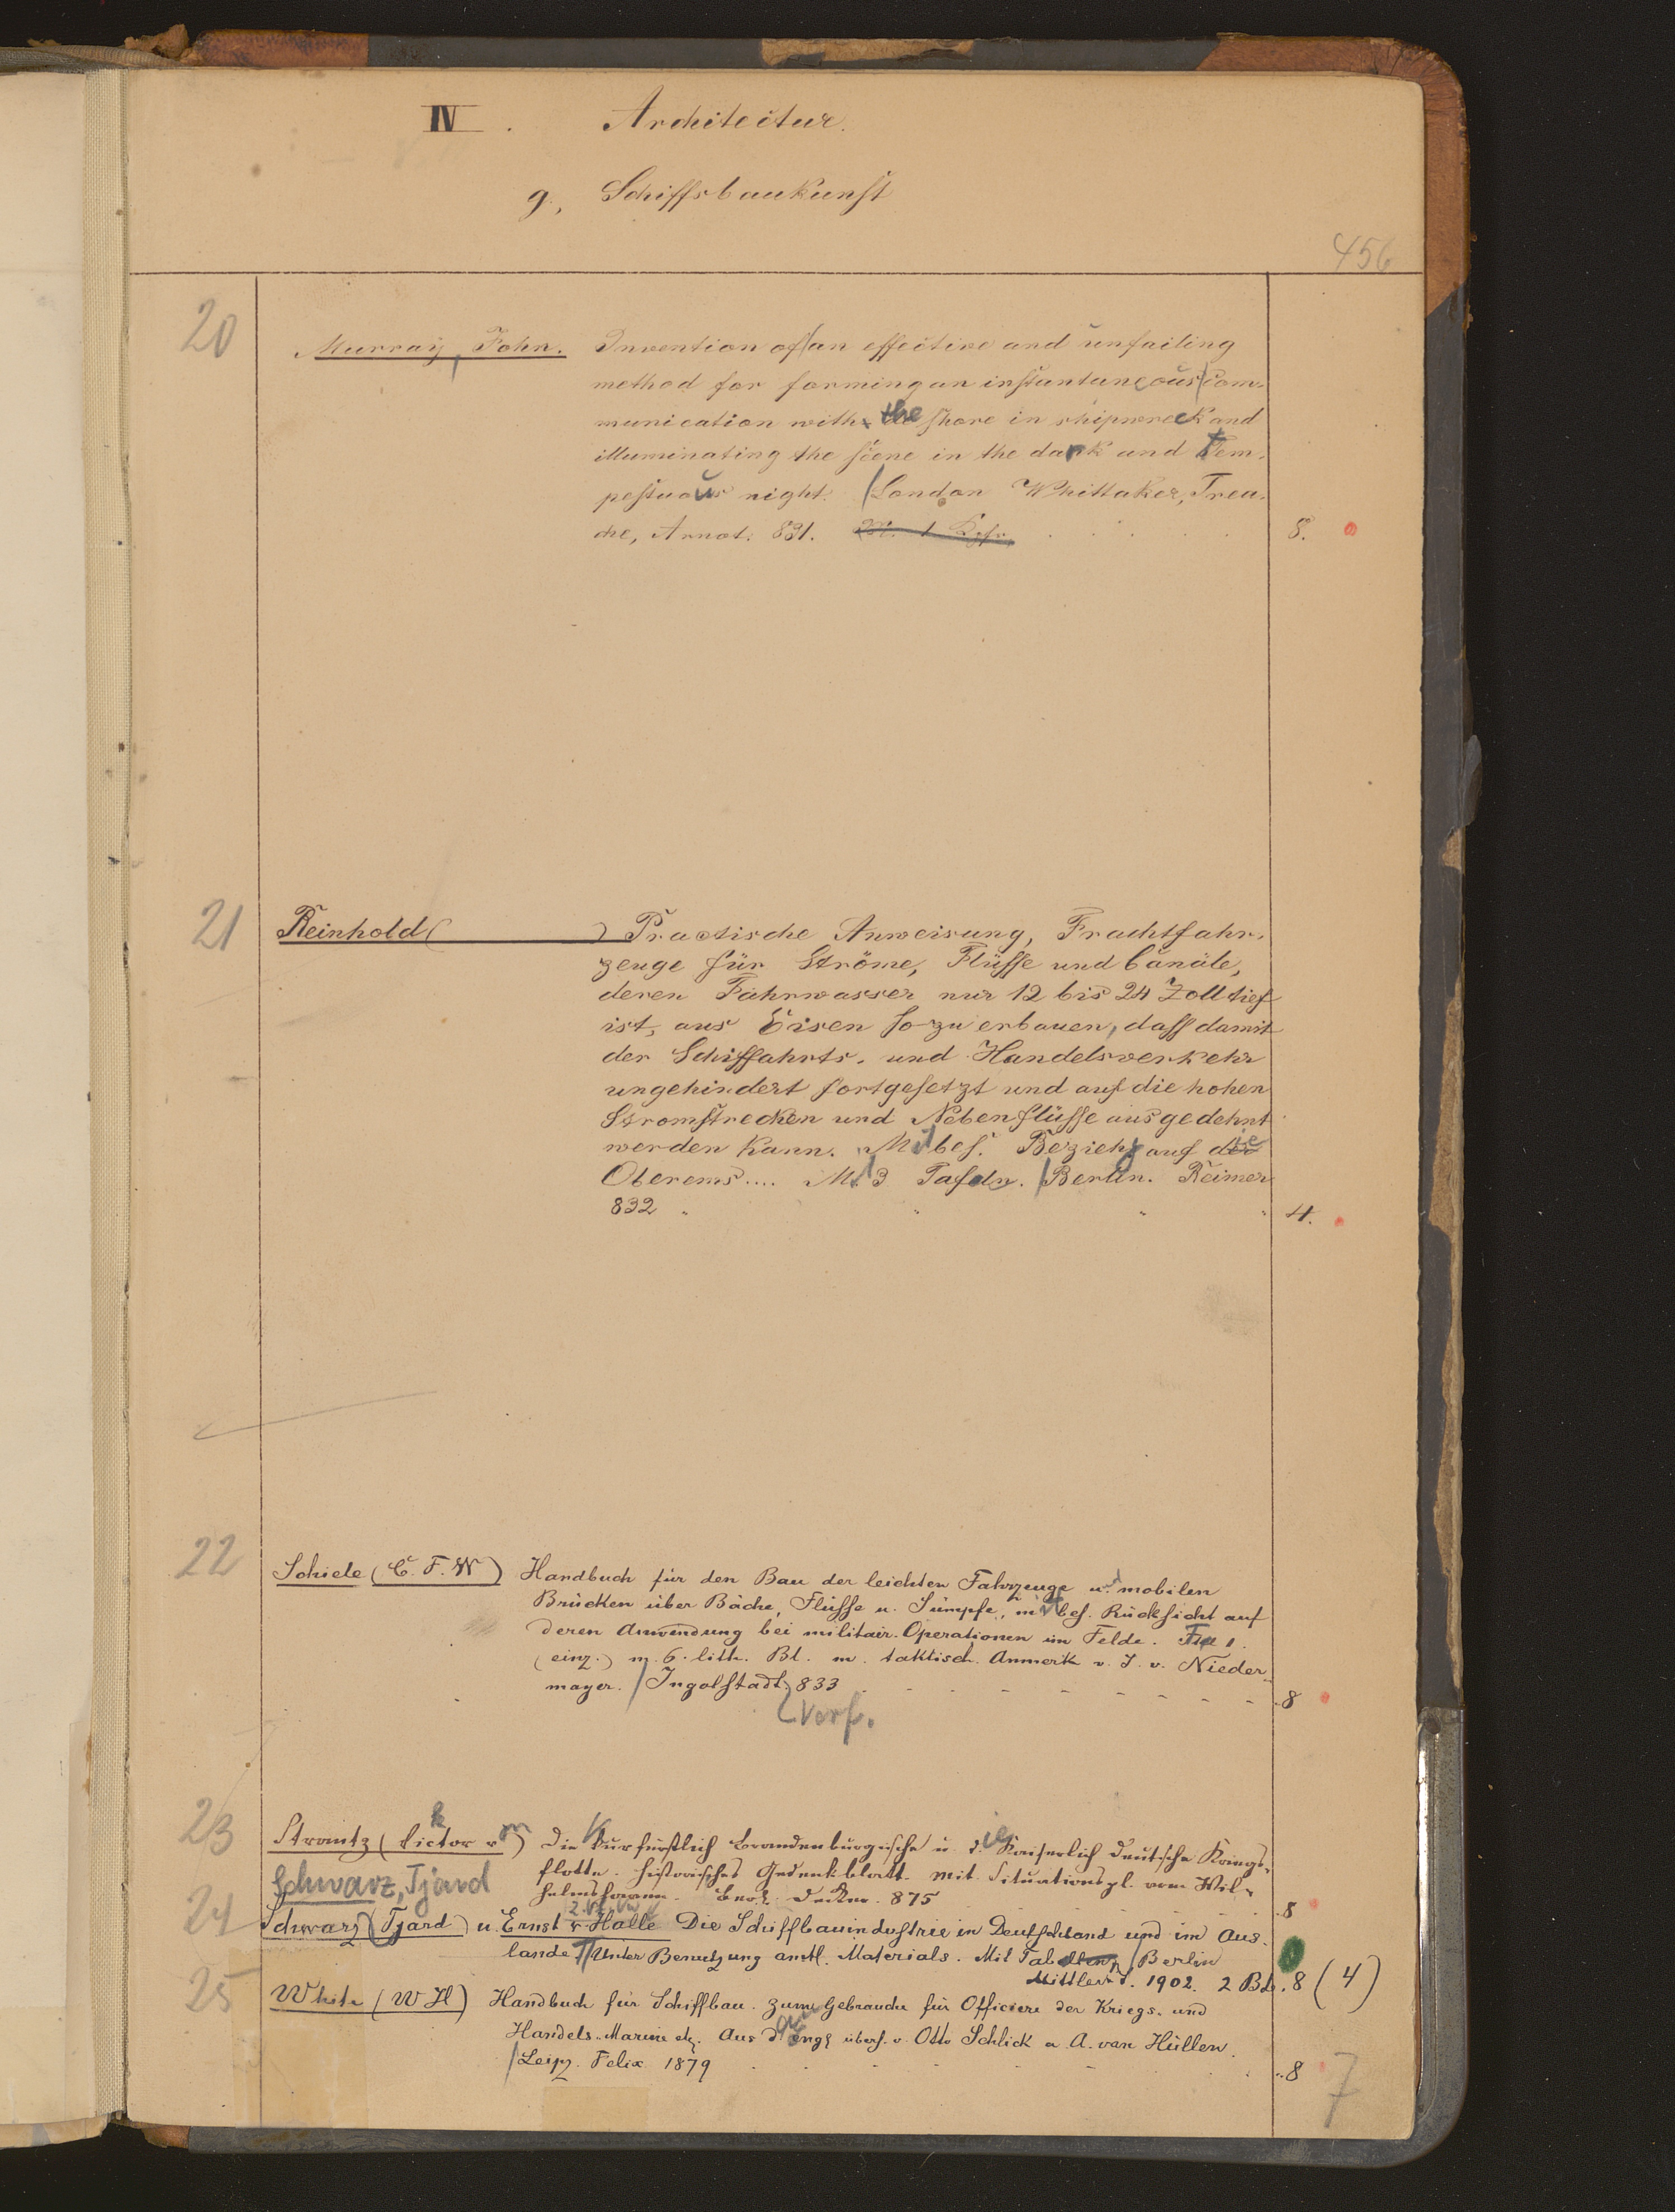 IV. Architectur.
g., Schiffsbaukunst
456
20
Murray, John. Invention of an effective and unfailing
method for forming an instantaneous com-
munication with the shore in shipwreck and
illuminating the scene in the dark and tem-
pestuous night. London Whittaker, Treu-
che, Arnot. 831. M. 1 Kpfr. 8.
21
Reinhold ( ) Practische Anweisung, Frachtfahr-
zeuge für Ströme, Flüsse und Canäle,
deren Fahrwasser nur 12 bis 24 Zoll tief
ist, aus Eisen so zu erbauen, dass damit
der Schiffahrts- und Handelsverkehr
ungehindert fortgesetzt und auf die hohen
Stromstrecken und Nebenflüsse ausgedehnt
werden kann. Mit bes. Beziehg auf die
Oberems.... M. 3 Tafeln. Berlin. Reimer
832 4.
22
Schiele (C. F. W) Handbuch für den Bau der leichten Fahrzeuge und mobilen
Brücken über Bäche, Flüsse u. Sümpfe, mit bes. Rücksicht auf
deren Anwendung bei militair. Operationen im Felde. 1.
(einz.) m. 6. lith. Bl. m. taktisch. Anmerk v. J. v. Nieder-
mayer. Ingolstadt, 833 8
Verf.
23
Strantz (Victor v) Die Kurfürstlich Brandenburgische u. die Kaiserlich Deutsche Kriegs-
flotte. Historisches Gedenkblatt. Mit Situationspl. vom Wil-
helmshaven. Berl. Decker. 875 8
Schwarz, Tjard
24
Schwarz (Tjard) u. Ernst v Halle Die Schiffbauindustrie in Deutschland und im Aus-
lande. Unter Benutzung amtl. Materials. Mit Tab Berlin
Mittler. 1902. 2 Bd. 8 (4)
25
White (W H) Handbuch für Schiffbau. Zum Gebrauche für Officiere der Kriegs- und
Handels-Marine etc. Aus d. engl übers. v. Otto Schlick u A. van Hüllen.
Leipz. Felix 1879 8
7